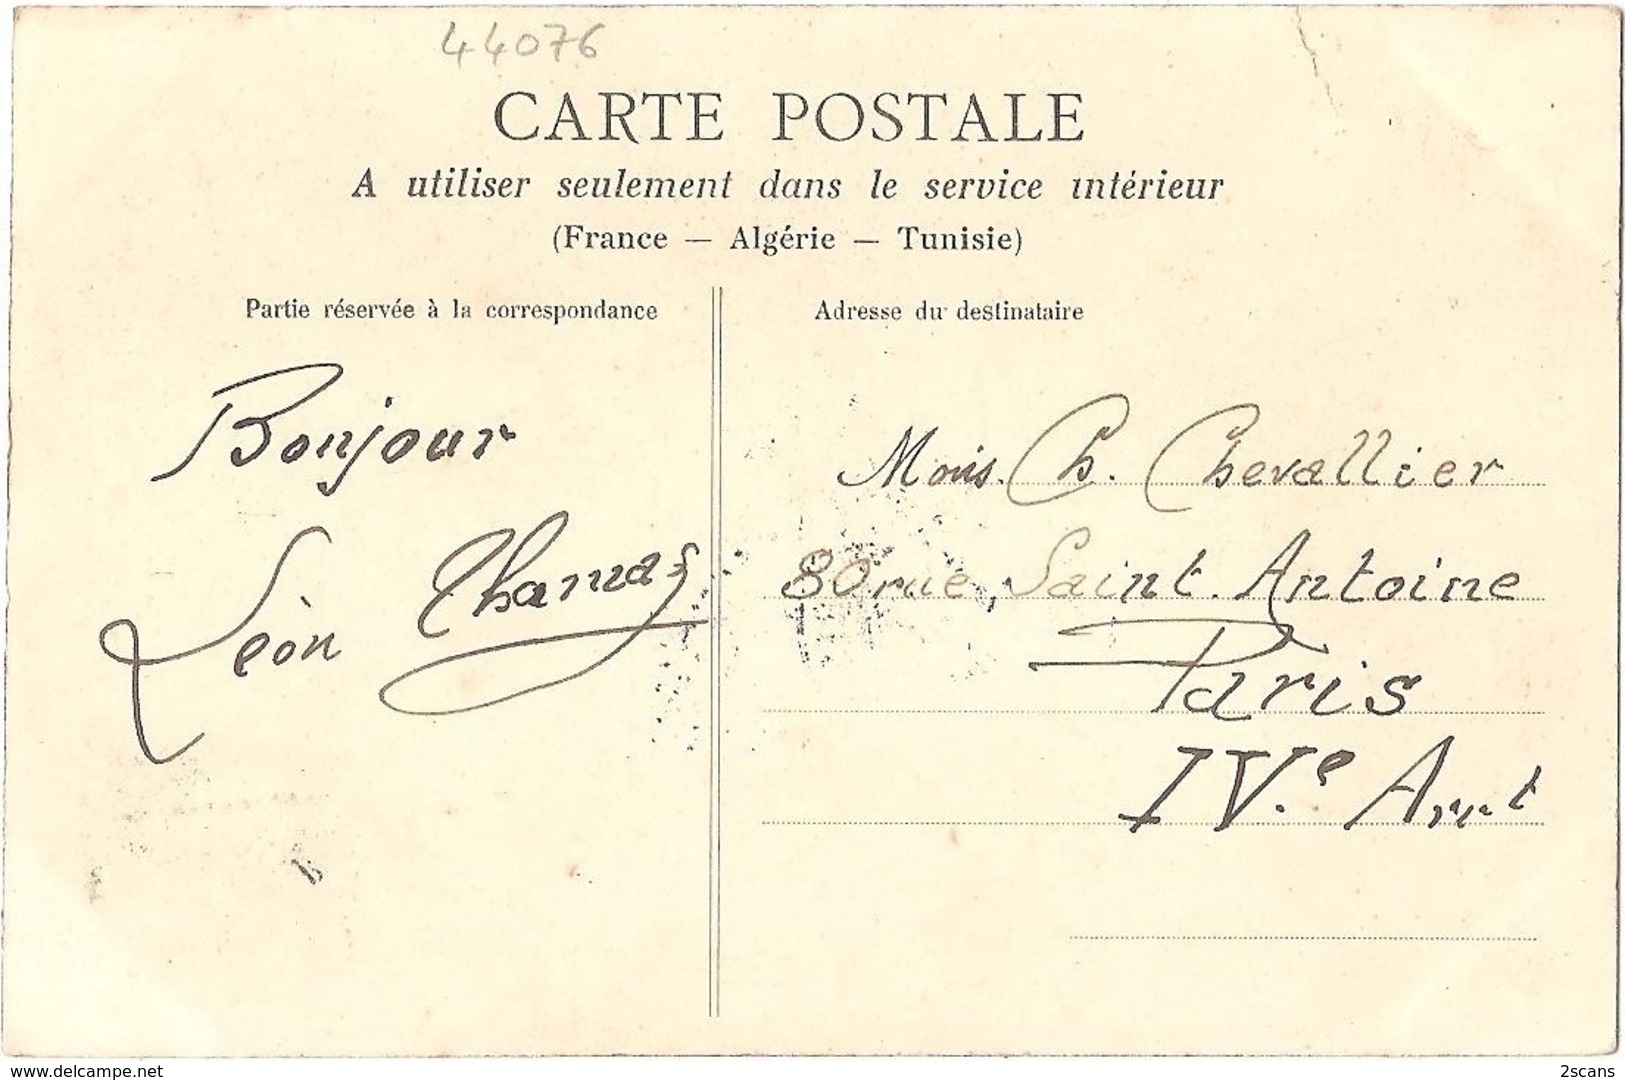 44076
CARTE POSTALE
A utiliser seulement dans le service intérieur
(France — Algérie — Tunisie)
Partie réservée à la correspondance
Bonjour
Léon
Adresse du destinataire
Mons. Ch. Chevallier
80 rue, Saint. Antoine
Paris
IV.e Arrt
www.delcampe.net
2scans